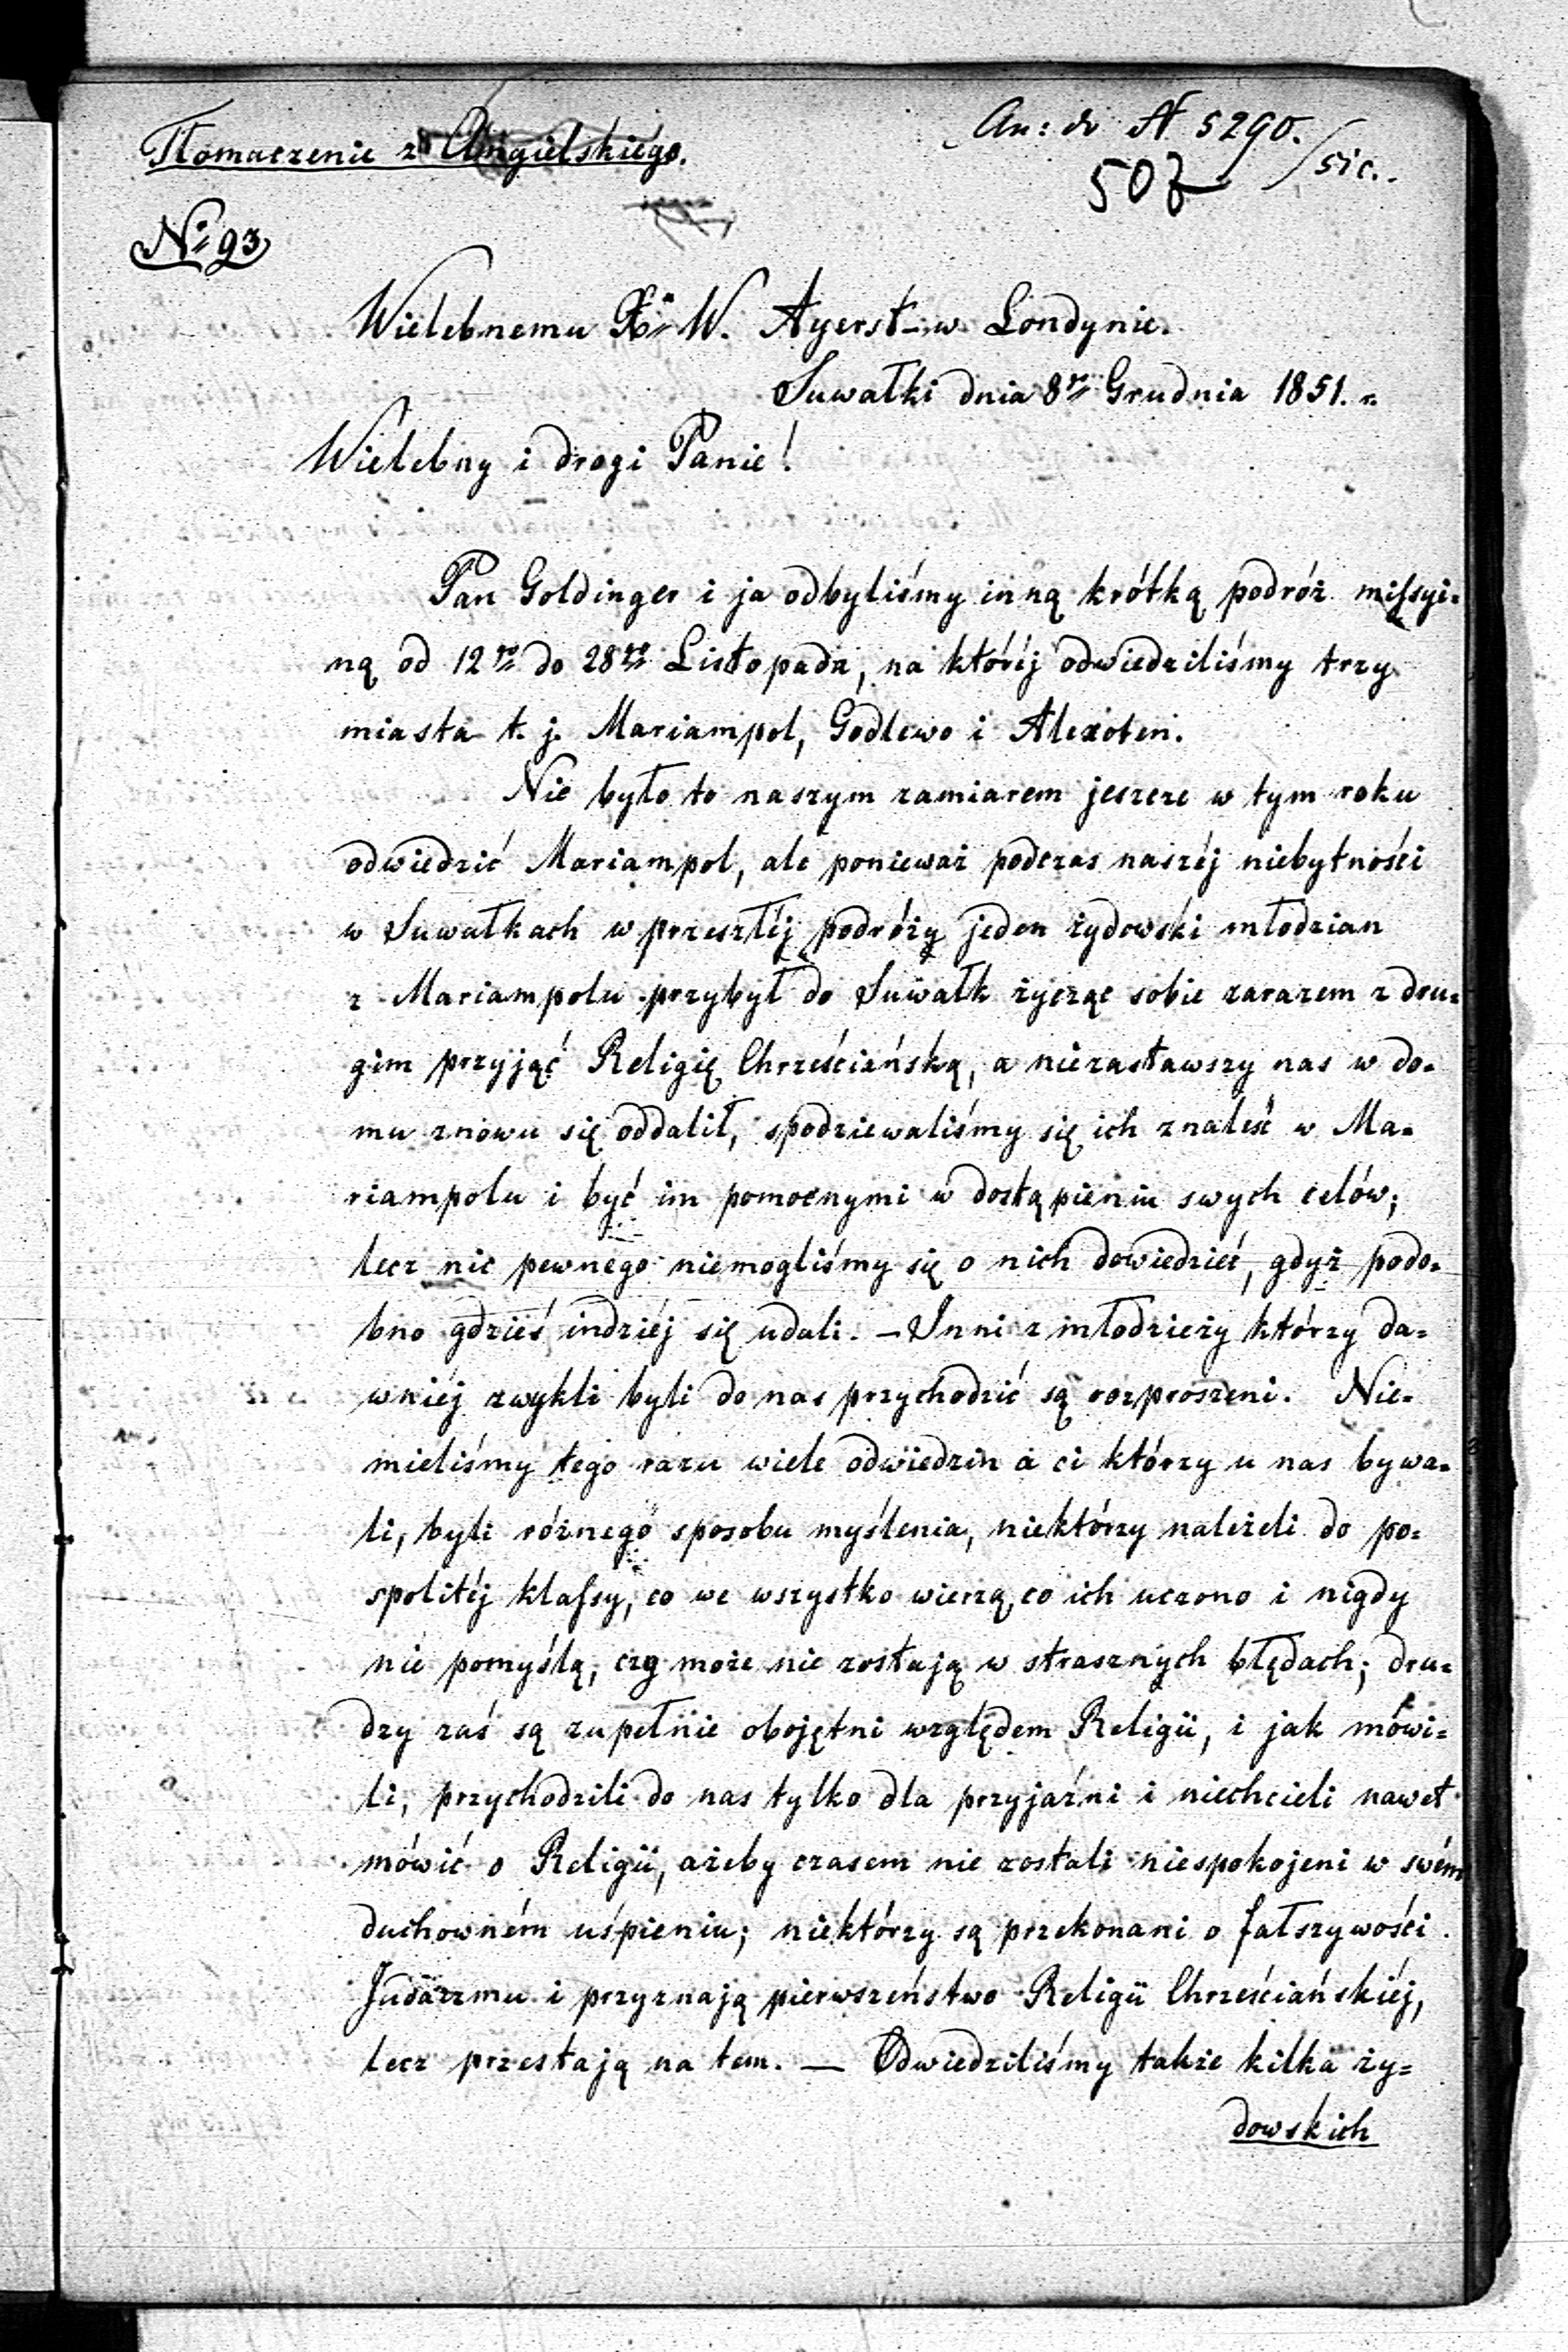 An: do N 5290./sic..
Tłomaczenie z Angielskiego.
507
No 93
Wielebnemu Xu W. Ayerst w Londynie.
Suwałki dnia 8go Grudnia 1851. r.
Wielebny i drogi Panie!
Pan Goldinger i ja odbyliśmy inną krótką podróż missyi-
ną od 12go do 28go Listopada, na któréj odwiedziliśmy trzy
miasta t. j. Mariampol, Godlewo i Alexoten.
Nie było to naszym zamiarem jeszcze w tym roku
odwiedzić Mariampol, ale ponieważ podczas naszéj niebytności
w Suwałkach w przeszłéj podróży jeden żydowski młodzian
z Mariampolu przybył do Suwałk życząc sobie zarazem z dru-
gim przyjąć Religię Chrześciańską, a niezastawszy nas w do-
mu znowu się oddalił, spodziewaliśmy się ich znaleść w Ma-
riampolu i być im pomocnymi w dostąpieniu swych celów;
lecz nic pewnego niemogliśmy się o nich dowiedzieć, gdyż podo-
bno gdzieś indziéj się udali. — Inni z młodzieży którzy da-
wniéj zwykli byli do nas przychodzić są rozproszeni. Nie-
mieliśmy tego razu wiele odwiedzin a ci którzy u nas bywa-
li, byli różnego sposobu myślenia, niektórzy należeli do po-
spolitéj klassy, co we wszystko wierzą, co ich uczono i nigdy
nie pomyślą, czy może nie zostają w strasznych błędach; dru-
dzy zaś są zupełnie obojętni względem Religii, i jak mówi-
li, przychodzili do nas tylko dla przyjaźni i niechcieli nawet
mówić o Religii, ażeby czasem nie zostali niespokojeni w swém
duchowném uśpieniu; niektórzy są przekonani o fałszywości
Judaizmu i przyznają pierwszeństwo Religii Chrześciańskiéj,
lecz przestają na tem. — Odwiedziliśmy także kilka ży-
dowskich